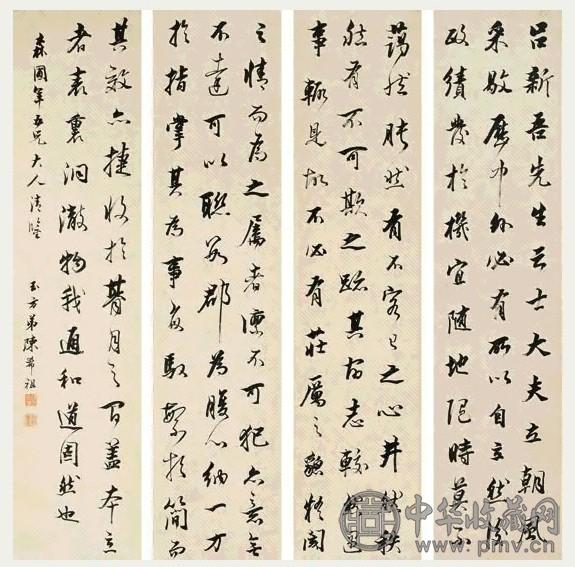 吕新吾先生云士大夫立朝風
采敭歷中外必有所以自立然後
政績發於機宜隨地隨時莫不
藹然肫然有不容已之心井然秩
然有不可欺之跡其志較
事輒是故不必有莊厲之
之情而為之屬者凜不可犯亦無
不達可以聯郡為腹心納一方
於指掌其為事省馭繁於簡而
其效亦捷收於朞月之間蓋本立
者表裏洞澈物我通和道固然也
森圃年五兄大人清鑒
玉方弟陳希祖
中华收藏网
www.pmv.cn